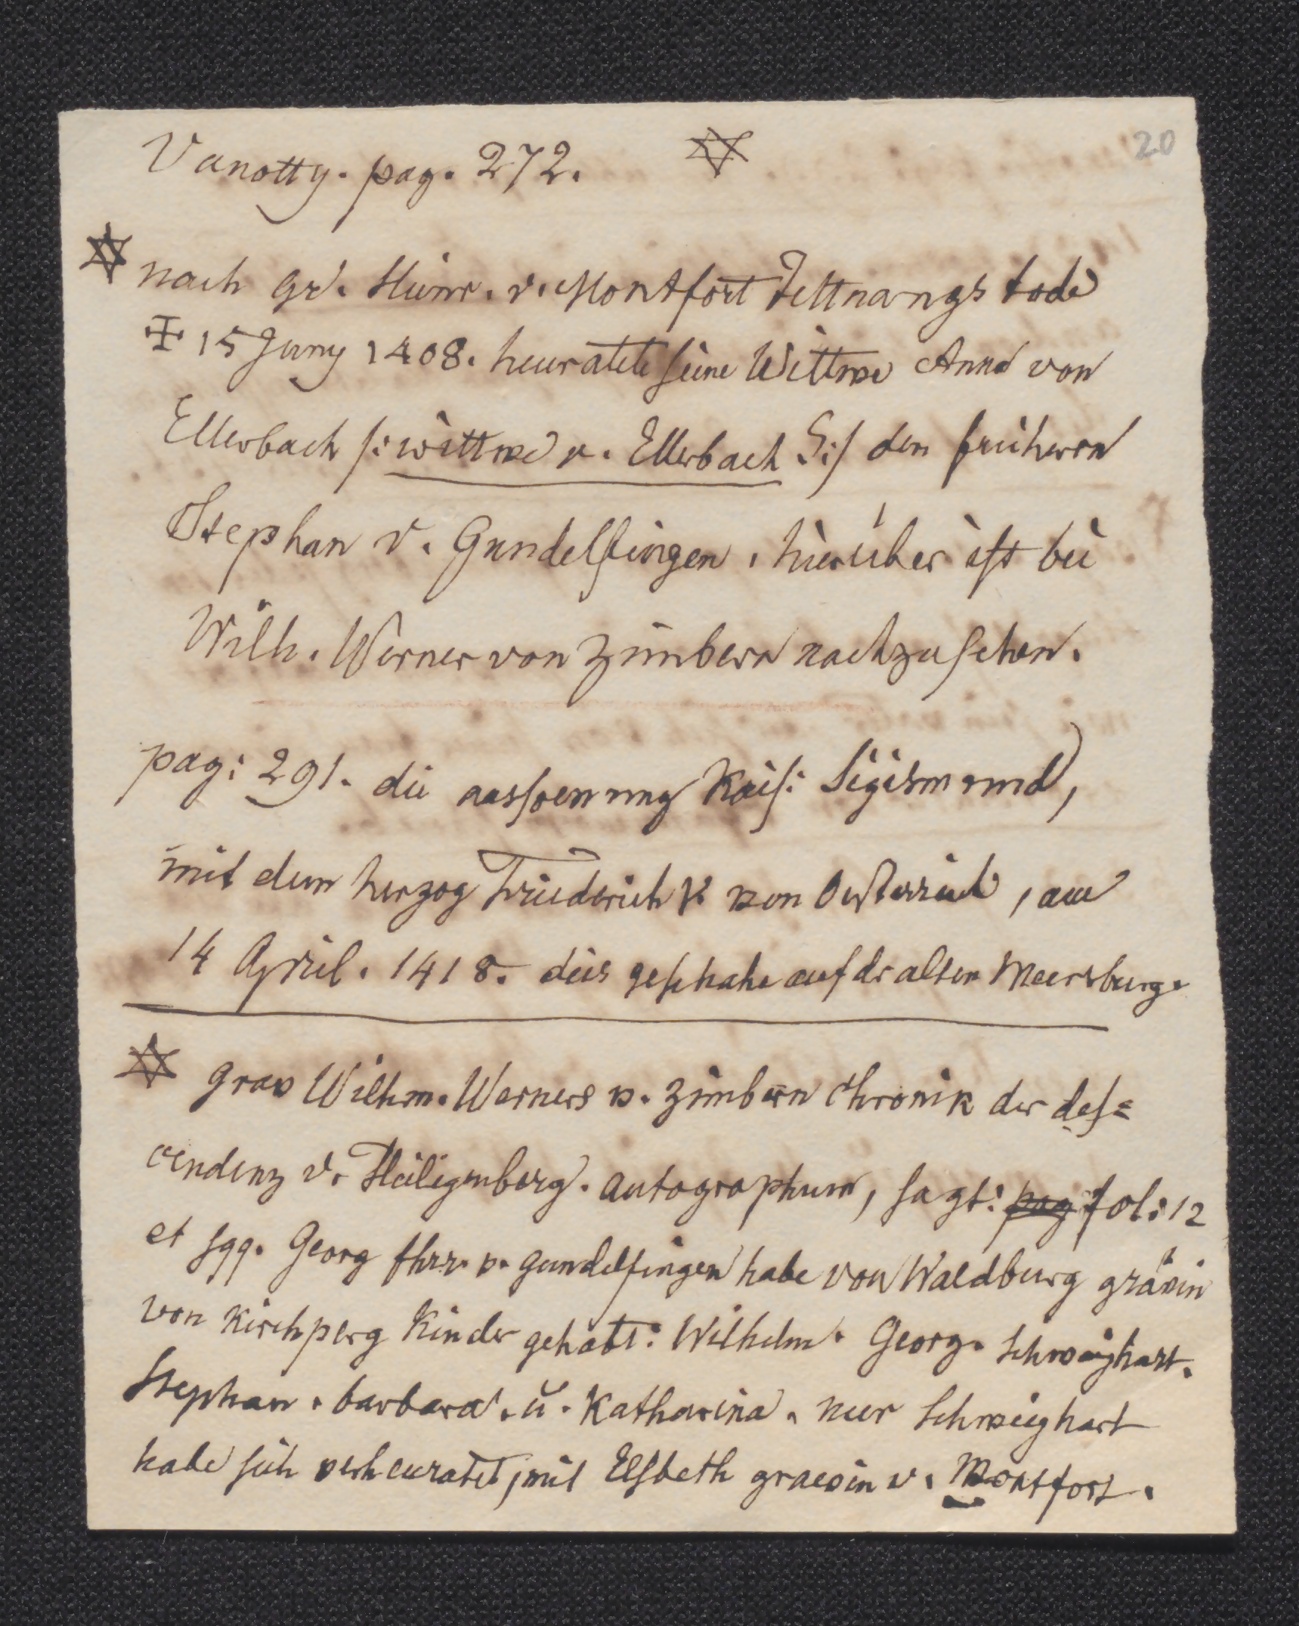 20
Vanotty. pag. 272. ✡
✡ nach gr. Heinr. v. Montfort Tettnangs tode
✠ 15 Juny 1408. heuratete seine Wittwe Anna von
Ellerbach /: wittwe v. Ellerbach S:/ den freiherrn
Stephan v. Gundelfingen, hierüber ist bei
Wilh. Werner von Zimbern nachzusehen.
pag: 291. die aussoenung Kais: Sigismund,
mit dem herzog Friederich v. von Oesterreich, am
14 April. 1418. dies geschahe auf dr alten Meersburg.
✡ grav Wilhm. Werners v. Zimbern Chronik der des=
cendenz v. Heiligenberg. autographum, sagt: pag fol: 12
et sqq. Georg fhrr. v. gundelfingen habe von Waldburg grävin
von Kirchperg Kinder gehabt: Wilhelm. Georg. Schweighart.
Stephan. barbara. u. Katharina. nur Schweighart
habe sich verheuratet, mit Elsbeth graevin v. Montfort.